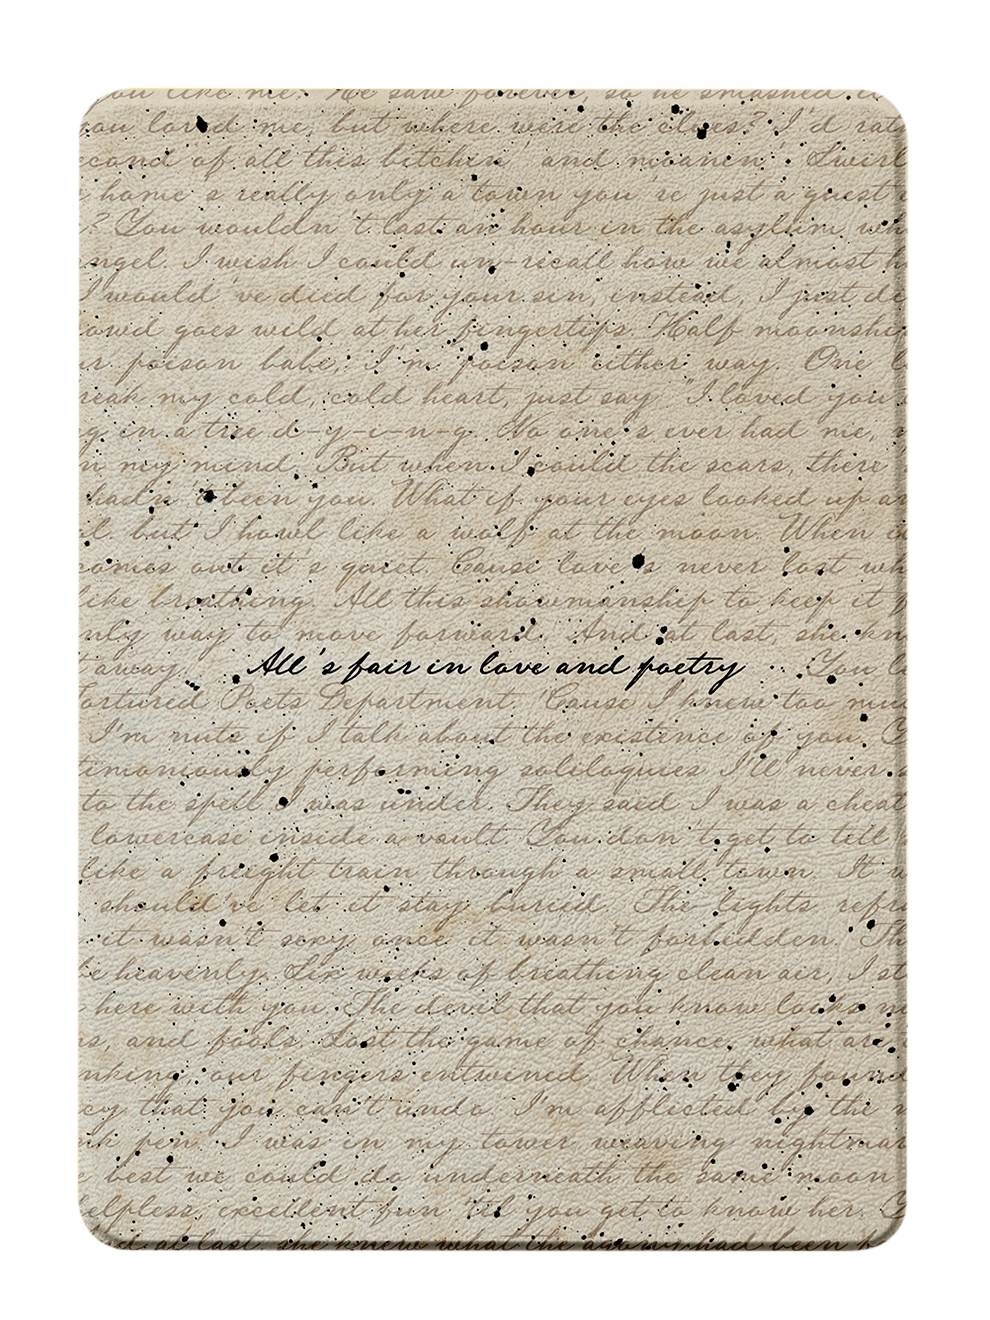 you like me? He saw forever, so he smashed it
you loved me, but where were the clues? I'd rat
econd of all this bitchin' and moanin'. Swirl
home's really only a town you're just a guest
? You wouldn't last an hour in the asylum wh
ngel. I wish I could un-recall how we almost h
I would've died for your sin, instead, I just di
owd goes wild at her fingertips. Half moonshi
ur poison babe, I'm poison either way. One l
reak my cold, cold heart, just say "I loved you
g in a tree d-y-i-n-g. No one's ever had me,
n my mind. But when I could the scars, there
hadn't been you. What if your eyes looked up an
l but I howl like a wolf at the moon. When it
comes out it's quiet. Cause love's never lost wh
like breathing. All this showmanship to keep it f
nly way to move forward. "And at last, she kn
t away You l
All's fair in love and poetry
ortured Poets Department. 'Cause I knew too mu
I'm nuts if I talk about the existence of you.
timoniously performing soliloquies I'll never s
to the spell I was under. They said I was a cheat
lowercase inside a vault. You don't get to tell
like a freight train through a small town. It w
should've let it stay buried. The lights refr
it wasn't sexy once it wasn't forbidden. Th
be heavenly. Six weeks of breathing clean air, I st
here with you. The devil that you know looks m
s, and fools. Lost the game of chance, what ar
nking, our fingers entwined. When they found
cy that you can't undo. I'm afflicted by the n
nk pen. I was in my tower weaving nightmar
best we could do underneath the same moon
elpless, excellent fun 'til you get to know her.
d at last, she knew what the agony had been f